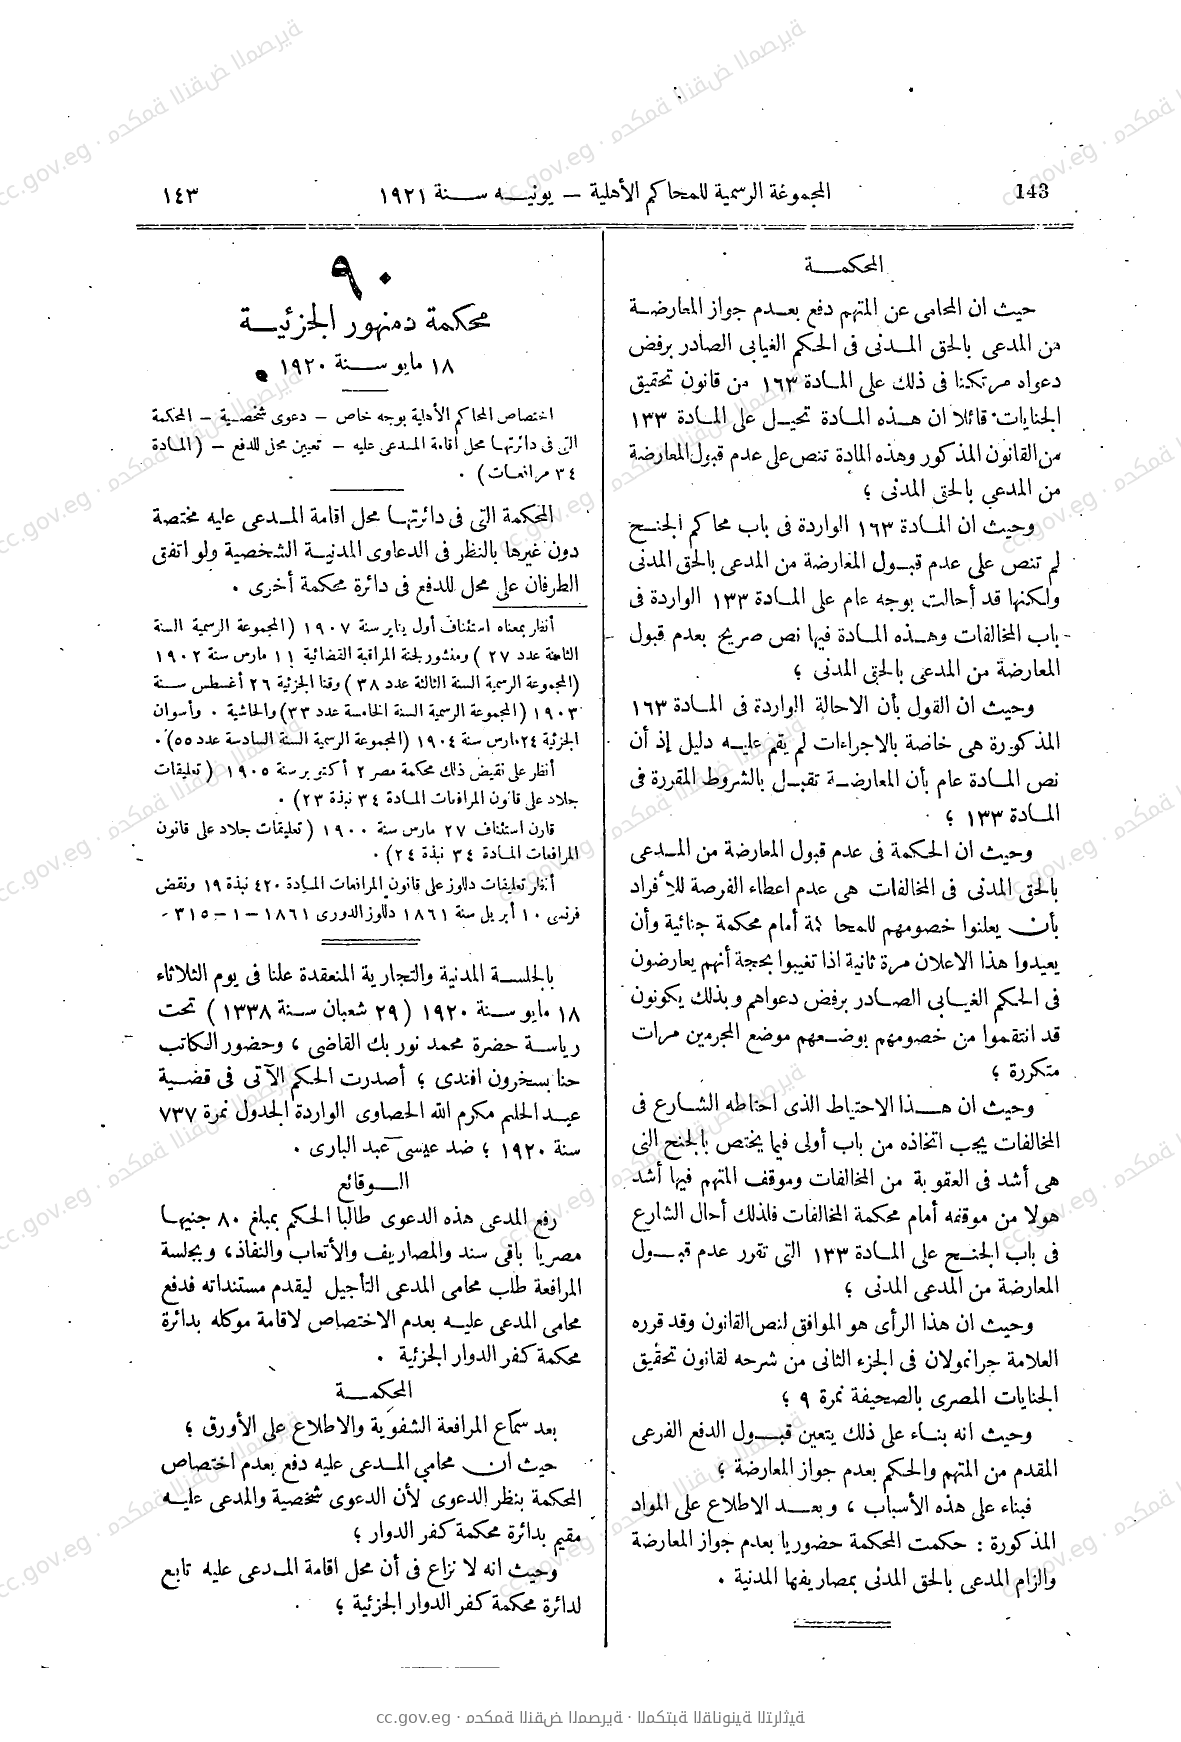 143
المجموعة الرسمية للمحاكم الأهلية – يونيه سنة ١٩٢١
١٤٣
المحكمة
حيث ان المحامى عن المتهم دفع بعدم جواز المعارضة
من المدعى بالحق المدنى فى الحكم الغيابى الصادر برفض
دعواه مرتكنا فى ذلك على المادة ١٦٣ من قانون تحقيق
الجنايات قائلا ان هذه المادة تحيل على المادة ١٣٣
من القانون المذكور وهذه المادة تنص على عدم قبول المعارضة
من المدعي بالحق المدنى ؛
وحيث ان المادة ١٦٣ الواردة فى باب محاكم الجنح
لم تنص على عدم قبول المعارضة من المدعى بالحق المدنى
ولكنها قد أحالت بوجه عام على المادة ١٣٣ الواردة فى
باب المخالفات وهذه المادة فيها نص صريح بعدم قبول
المعارضة من المدعى بالحق المدنى ؛
وحيث ان القول بأن الاحالة الواردة فى المادة ١٦٣
المذكورة هى خاصة بالاجراءات لم يقم عليه دليل إذ أن
نص المادة عام بأن المعارضة تقبل بالشروط المقررة فى
المادة ١٣٣ ؛
وحيث ان الحكمة فى عدم قبول المعارضة من المدعى
بالحق المدنى فى المخالفات هى عدم اعطاء الفرصة للأفراد
بأن يعلنوا خصومهم للمحا كمة أمام محكمة جنائية وأن
يعيدوا هذا الاعلان مرة ثانية اذا تغيبوا بحجة أنهم يعارضون
فى الحكم الغيابى الصادر برفض دعواهم وبذلك يكونون
قد انتقموا من خصومهم بوضعهم موضع المجرمين مرات
متكررة ؛
وحيث ان هذا الاحتياط الذى احتاطه الشارع فى
المخالفات يجب اتخاذه من باب أولى فيما يختص بالجنح التى
هى أشد فى العقوبة من المخالفات وموقف المتهم فيها أشد
هولا من موقفه أمام محكمة المخالفات فلذلك أحال الشارع
فى باب الجنح على المادة ١٣٣ التى تقرر عدم قبول
المعارضة من المدعى المدنى ؛
وحيث ان هذا الرأى هو الموافق لنص القانون وقد قرره
العلامة جرانمولان فى الجزء الثانى من شرحه لقانون تحقيق
الجنايات المصرى بالصحيفة نمرة ٩ ؛
وحيث انه بناء على ذلك يتعين قبول الدفع الفرعى
المقدم من المتهم والحكم بعدم جواز المعارضة ؛
فبناء على هذه الأسباب ، وبعد الاطلاع على المواد
المذكورة : حكمت المحكمة حضوريا بعدم جواز المعارضة
والزام المدعى بالحق المدنى بمصاريفها المدنية .
٩٠
محكمة دمنهور الجزئية
١٨ مايو سنة ١٩٢٠
اختصاص المحاكم الأهلية بوجه خاص – دعوى شخصية – المحكمة
التى فى دائرتها محل أقامة المدعى عليه – تعيين محل للدفع – (المادة
٣٤ مرافعات) .
المحكمة التى فى دائرتها محل اقامة المدعى عليه مختصة
دون غيرها بالنظر فى الدعاوى المدنية الشخصية ولو اتفق
الطرفان على محل للدفع فى دائرة محكمة أخرى .
أنظر بمعناه استئناف أول يناير سنة ١٩٠٧ (المجموعة الرسمية السنة
الثامنة عدد ٢٧ ) ومنشور لجنة المراقبة القضائية ١١ مارس سنة ١٩٠٢
(المجموعة الرسمية السنة الثالثة عدد ٣٨ ) وقنا الجزئية ٢٦ أغسطس سنة
١٩٠٣ (المجموعة الرسمية السنة الخامسة عدد ٣٣) والحاشية . وأسوان
الجزئية ٢٤ مارس سنة ١٩٠٤ (المجموعة الرسمية السنة السادسة عدد ٥٥) .
أنظر على نقيض ذلك محكمة مصر ٢ أكتوبر سنة ١٩٠٥ ( تعليقات
جلاد على قانون المرافعات المادة ٣٤ نبذة ٢٣) .
قارن استئناف ٢٧ مارس سنة ١٩٠٠ ( تعليقات جلاد على قانون
المرافعات المادة ٣٤ نبذة ٢٤) .
أنظر تعليقات دللوز على قانون المرافعات المادة ٤٢٠ نبذة ١٩ ونقض
فرنسى ١٠ أبريل سنة ١٨٦١ دللوز الدورى ١٨٦١–١–٣١٥ .
بالجلسة المدنية والتجارية المنعقدة علنا فى يوم الثلاثاء
١٨ مايو سنة ١٩٢٠ ( ٢٩ شعبان سنة ١٣٣٨ ) تحت
رياسة حضرة محمد نور بك القاضى ، وحضور الكاتب
حنا بسخرون افندى ؛ أصدرت الحكم الآتى فى قضية
عبد الحليم مكرم الله الحصاوى الواردة الجدول نمرة ٧٣٧
سنة ١٩٢٠ ؛ ضد عيسى عبد البارى .
الوقائع
رفع المدعى هذه الدعوى طالبا الحكم بمبلغ ٨٠ جنيها
مصريا باقى سند والمصاريف والأتعاب والنفاذ ، وبجلسة
المرافعة طلب محامى المدعى التأجيل ليقدم مستنداته فدفع
محامى المدعى عليه بعدم الاختصاص لاقامة موكله بدائرة
محكمة كفر الدوار الجزئية .
المحكمة
بعد سماع المرافعة الشفوية والاطلاع على الأورق ؛
حيث ان محامي المدعى عليه دفع بعدم اختصاص
المحكمة بنظر الدعوى لأن الدعوى شخصية والمدعى عليه
مقيم بدائرة محكمة كفر الدوار ؛
وحيث انه لا نزاع فى أن محل اقامة المدعى عليه تابع
لدائرة محكمة كفر الدوار الجزئية ؛
cc.gov.eg · محكمة النقض المصرية · المكتبة القانونية التراثية